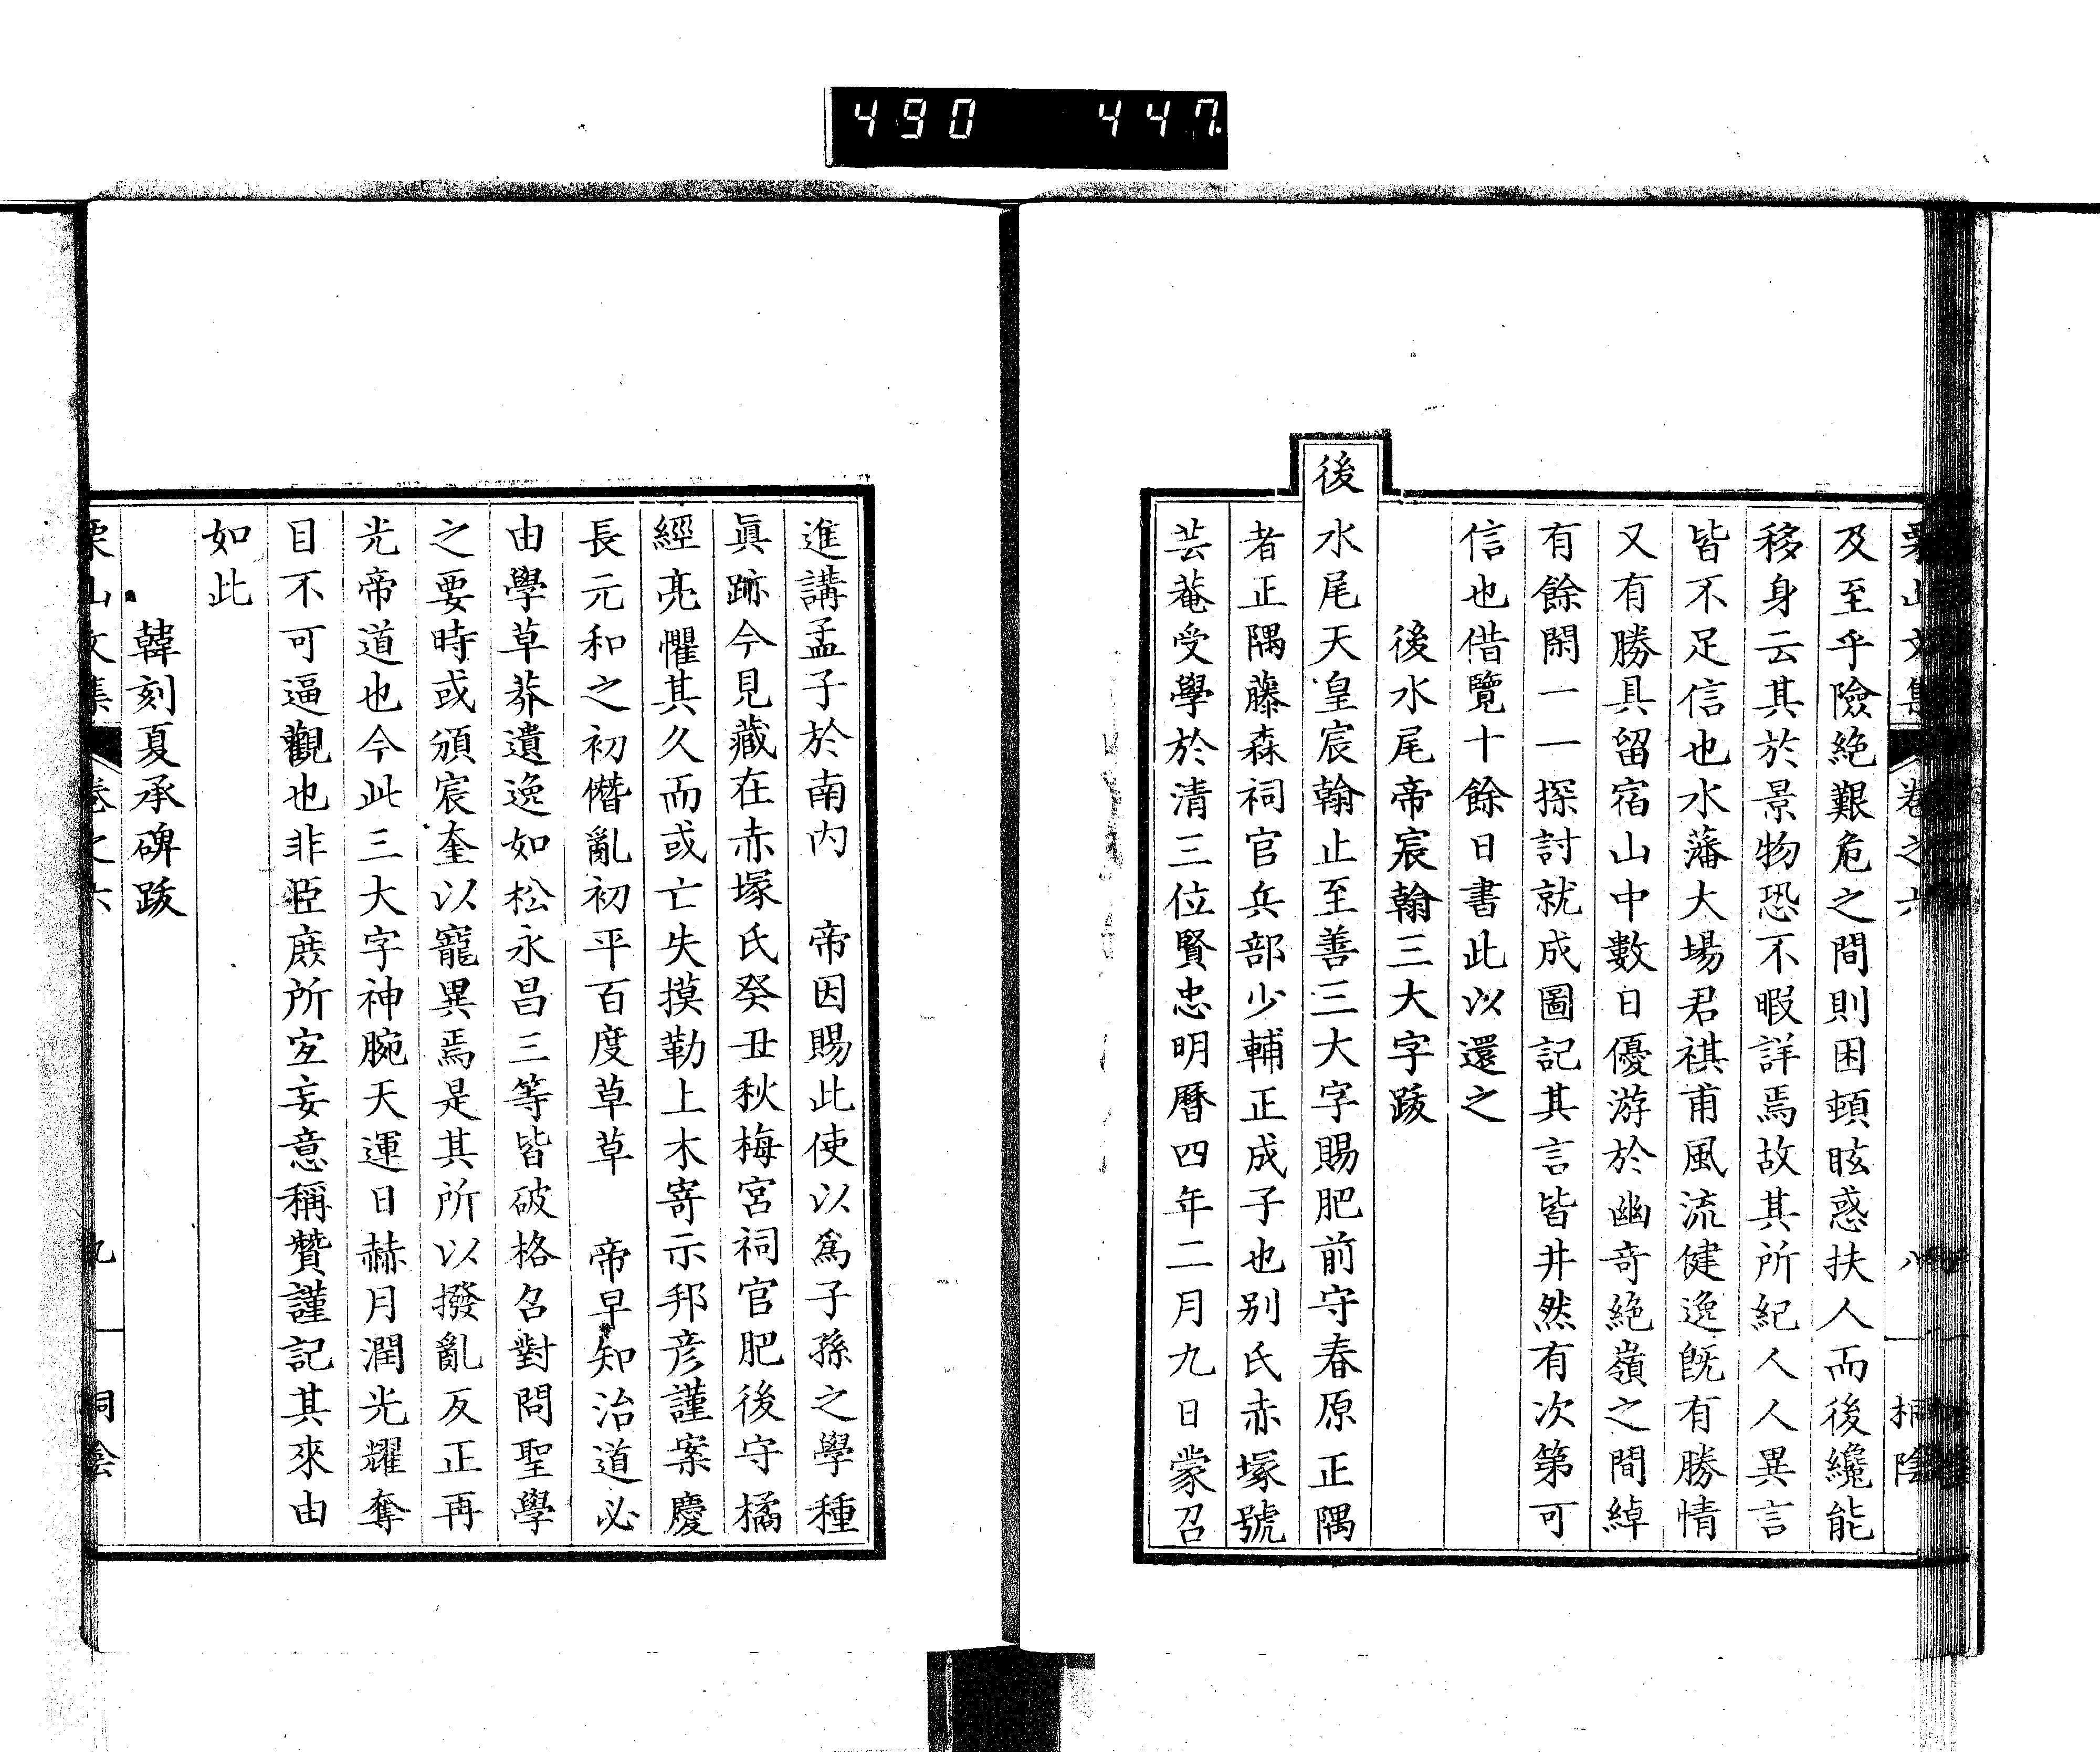 490 447
及至乎險絶艱危之間則困頓眩惑扶人而後纔能
移身云其於景物恐不暇詳焉故其所紀人人異言
皆不足信也水藩大場君祺甫風流健逸既有勝情
又有勝具留宿山中數日優游於幽奇絶嶺之間綽
有餘閑一一探討就成圖記其言皆井然有次第可
信也借覽十餘日書此以還之
後水尾帝宸翰三大字跋
後水尾天皇宸翰止至善三大字賜肥前守春原正隅
者正隅藤森祠官兵部少輔正成子也别氏赤塚號
芸菴受學於清三位賢忠明曆四年二月九日蒙召
進講孟子於南内 帝因賜此使以爲子孫之學種
眞跡今見藏在赤塚氏癸丑秋梅宮祠官肥後守橘
經亮懼其久而或亡失摸勒上木寄示邦彦謹案慶
長元和之初僭亂初平百度草草 帝早知治道必
由學草莽遺逸如松永昌三等皆破格召對問聖學
之要時或頒宸奎以寵異焉是其所以撥亂反正再
光帝道也今此三大字神腕天運日赫月潤光耀奪
目不可逼觀也非臣庶所宜妄意稱贊謹記其來由
如此
韓刻夏承碑跋
栗山文集 卷之六 九